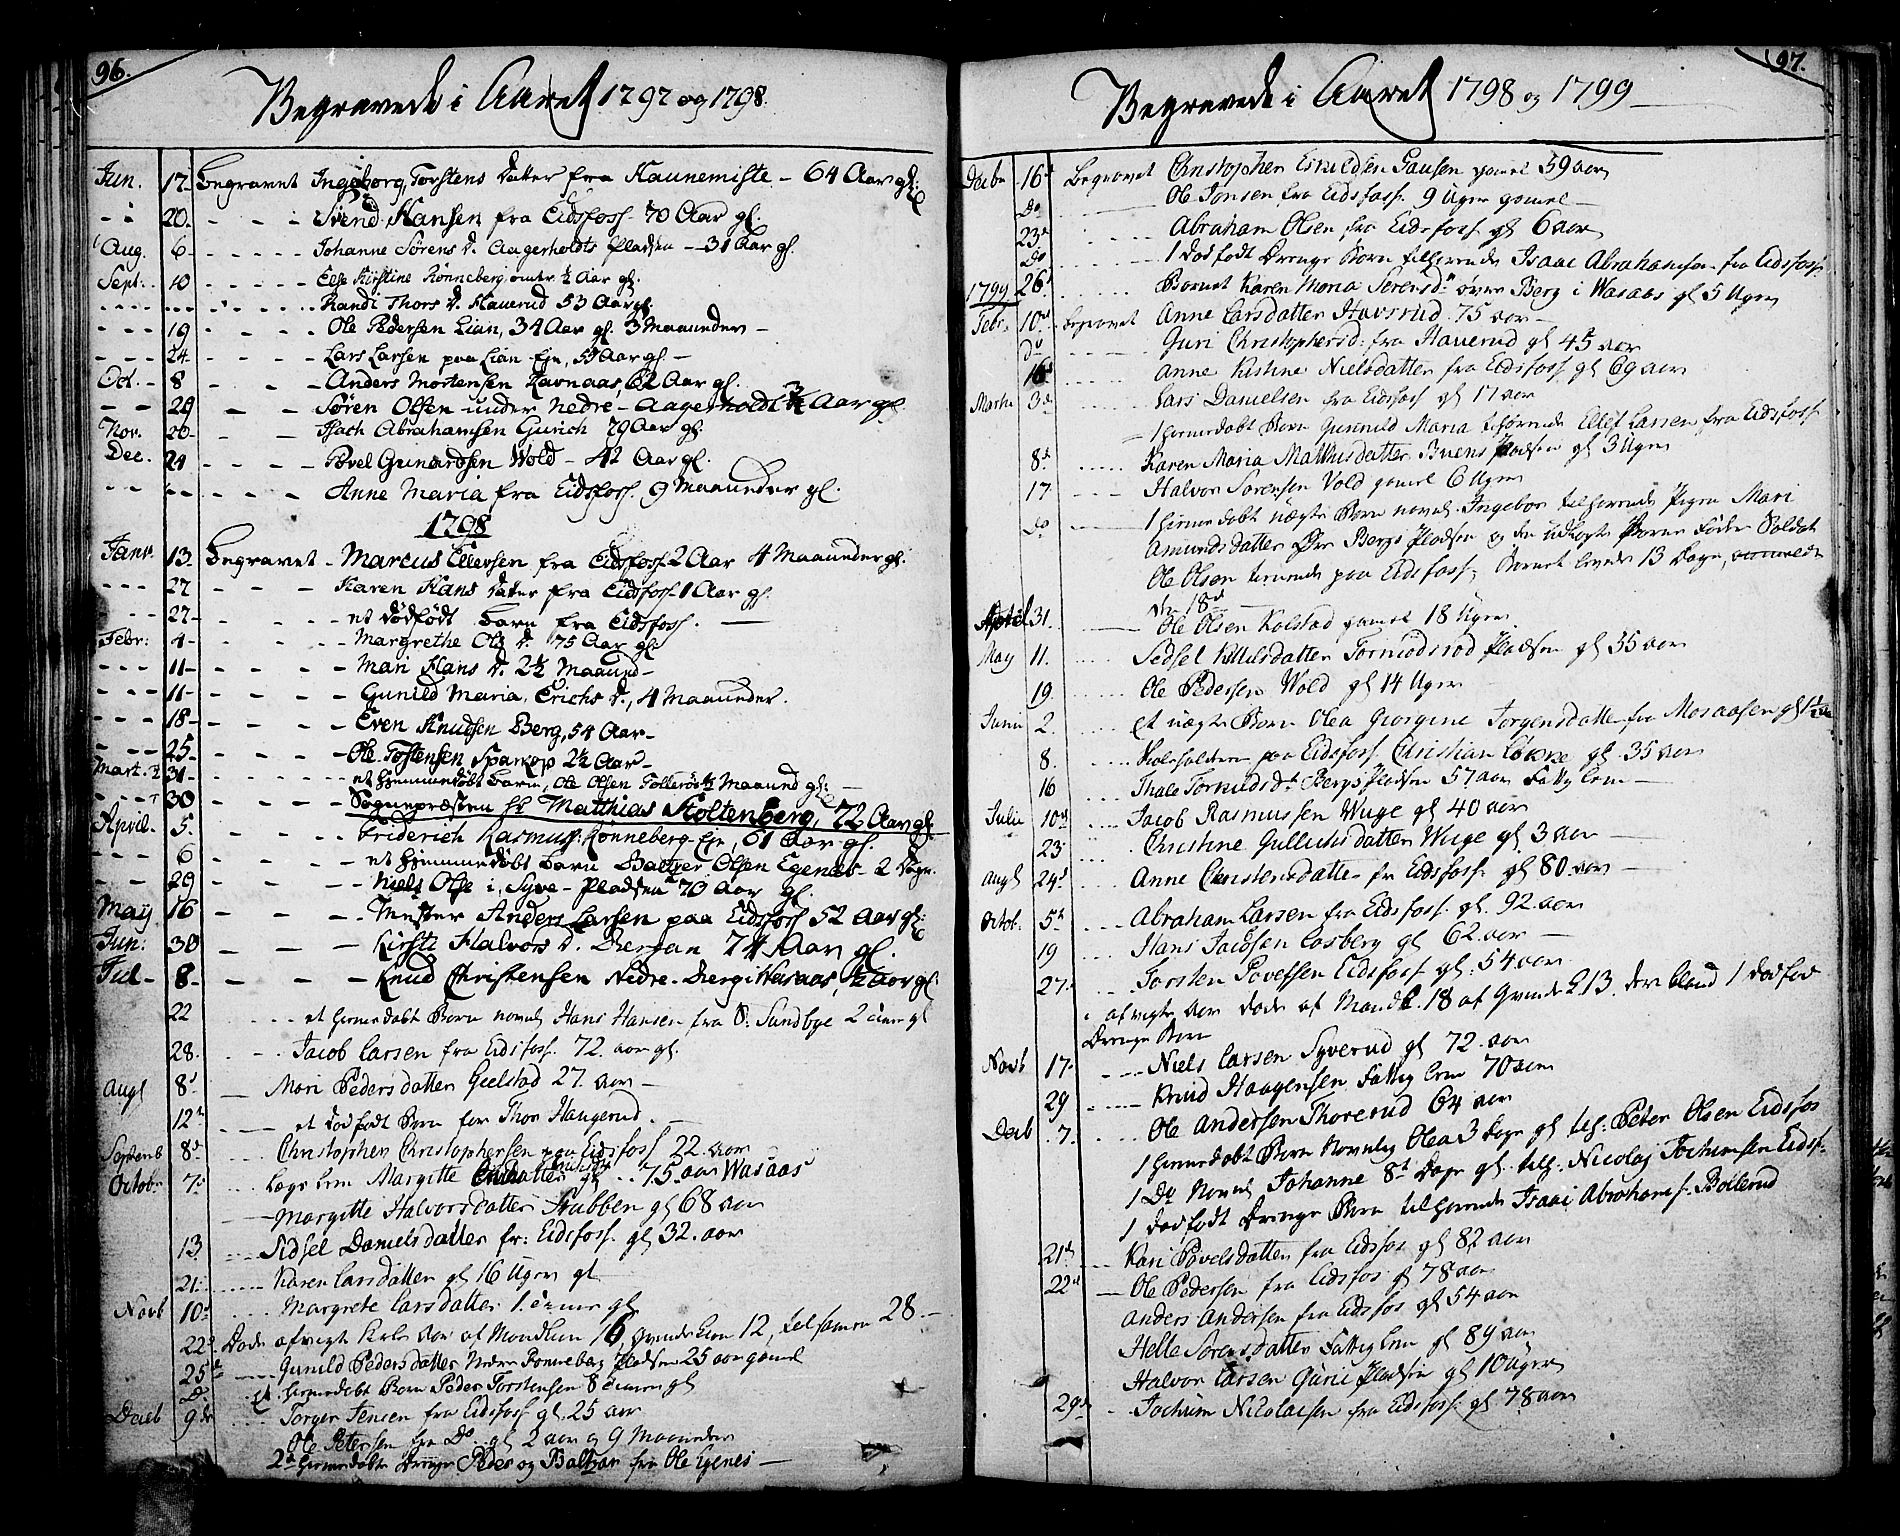 96.
Begravede i Aaret 1797 og 1798.
Jun. 17. Begravet Ingeborg Torstens Datter fra Haunemiste - 64 Aar gl:
20. Svend Hansen fra Eidsfoss 70 Aar gl.
Aug. 6 Johanne Sørens d. Aagerholdts Pladsen - 31 Aar gl.
Sept. 10 Else Kirstine Rønneberg under ½ Aar gl.
Randi Thors d. Haverud 53 Aar gl.
19 Ole Pedersen Lian, 34 Aar gl. 3 Maaneder -
24. Lars Larsen paa Lian Eje, 59 Aar gl. -
Oct. 8 Anders Mortensen Ravnaas, 62 Aar gl.
29 Søren Olsen under Nedre - Aagerholdt ¾ Aar gl.
Nov. 20 Isach Abrahamsen Gurich 79 Aar gl.
Dec. 24 Povel Gunardsen Wold - 42 Aar gl.
Anne Maria fra Eidsfoss. 9 Maaneder gl.
1798
Janr. 13. Begravet - Marcus Ellevsen fra Eidsfoss 2 Aar 4 Maaneder gl.
27 Karen Hans Datter fra Eidsfoss 1 Aar gl.
27 et dødfødt Barn fra Eidsfoss.
Febr: 4 Margrethe Ols d. 75 Aar gl.
11 Mari Hans d. 2½ Maaned
11 Gunild Maria Erichs d., 4 Maaneder.
18 Even Knudsen Berg, 54 Aar
25 Ole Tostensen Sparkop 2½ Aar
Mart. 31 et hjemmedøbt Barn, Ole Olsen Tollerøs ½ Maaned gl:
30 Sognepræsten Hr Matthias Stoltenberg, 72 Aar gl.
April. 5. Friderich Rasmuss: Rønneberg Eje, 61 Aar gl.
6 et hjemmedøbt Barn Baltzer Olsen Egenæs 2 Dage.
29 Niels Olse i Syve - Pladsen 70 Aar gl.
May 16 Mester Anders Larsen paa Eidsfoss 52 Aar gl:
Jun: 30 Kirsti Halvors d. Bergan 74 Aar gl.
Jul 8 Knud Christensen Nedre - Berg i Wasaas, ½ Aar gl.
22 et hiemedøbt Barn navnl Hans Hansen fra S: Sundbye 2 uuer gl
28. Jacob Larsen fra Eidsfoss. 72. aar gl.
Augl 8d Mari Pedersdatter Gielstad 27. aar
12t et dødfødt Barn for Thor Haugerud.
Septemb 8d Christopher Christophersen paa Eidsfoss 22. aar
Octob. 7 Lægs Lem Margitte datter gl 75 aar Wasaas
Margitte Halvorsdatter Stubben gl 68 aar
13 Sidsel Danielsdatter fr: Eidsfoss. gl 32. aar
21. Karen Larsdatter gl 16 Uger gl
Novb 10d Margrete Larsdatter 1. gl
22d Døde afvigte Kirke Aar af Mandkiøn 16 Qvindekiøn 12, tilsamen 28.
25d Gunild Pedersdatter Nedre Ronneberg Pladsen 25 aar gamel
Do Et hiemedøbt Barn Peder Torstensen 8 gl
Decb 9de Torger Jensen fra Eidsfoss gl. 25 aar
Ole Petersen fra Do gl 2 aar og 9 Maaneder
2de hiemedøbte Drenge Peder og Baltzar fra Ole Egenes
97.
Begravede i Aaret 1798 og 1799
Decbr 16d Begravet Christopher Eskildsen Gausen gamel 39 aar
Do Ole Jonsen fra Eidsfoss. 9 Uger gamel
23d Abraham Olsen fra Eidsfoss gl 6 aar
Do 1 dødfødt Drenge Barn tilhørende Isaac Abrahamsen fra Eidsfoss
26 Barnet Karen Maria Sørensd. øvre Berg i Wasaas gl 5 Uger
1799
Febr. 10d Begravet Anne Larsdatter Havsrud 75 aar
Do Guri Christophersd: fra Haverud gl 45 aar
16d Anne Kistine Nielsdatter fra Eidsfoss gl 69 aar
Martii 3de Lars Danielsen fra Eidsfoss gl 17 aar
1 hiemedøbt Barn Gunnild Maria tilhørende Ellef Larsen fra Eidsfoss
8d Karen Maria Mathisdatter Buens Pladsen gl 3 Uger
17 Halvor Sørensen Vold gamel 6 Uger
Do 1 hiemedøbt uægte Barn navnl. Ingebor tilhørende Pigen Mari
Amundsdatter Øvr Bergs Pladsen og den udlagte Barne Fader Soldat
Ole Olsen tienende paa Eidsfoss; Barnet levede 13 Dage,
den 18d
April 31. Ole Olsen Kolstad gamel 18 Uger.
May 11. Sedsel Nilsdatter Tormodsrød Pladsen gl 35 aar
19. Ole Pedersen Wold gl 14 Uger
Junii 2. et uægte Barn Olea Giorgine Jorgensdatter fra Mosaasen gl 1½
8. paa Eidsfoss Christian Løkke gl 35 aar
16 Thale Tormodsdtr Bergs Pladsen 57 aar Fattig Lem
Julii 10d Jacob Rasmussen Wuge gl 40 aar
23 Christine Gulliksdatter Wuge gl 3 aar
Augl 24d Anne Christensdatter fr Eidsfoss gl 80 aar
Octob. 5t Abraham Larsen fra Eidsfoss. gl. 92. aar
19 Hans Jacobsen Løsberg gl 62. aar
27. Torsten Povelsen Eidsfoss gl. 54 aar
i afvigte Aar døde af Mandk. 18 af Qvindek 13. der i bland 1 dødfød
Drenge Barn
Novb 17. Niels Larsen Syverud gl 72. aar
29 Knud Haagensen Fattig Lem 70 aar
Decb 7. Ole Andersen Thorerud 64 aar
1 hiemedøbt Barn Navnlig Olea 3 Dage gl tilh: Peter Olsen Eidsfos
1 Do Navnl Johanne 8t Dage gl. tilh: Nicolaj Jochumsen Eidsf.
1 dødfødt Drenge Barn tilhørende Isaac Abrahams: Bollerud
21d Kari Povelsdatter fra Eidsfos gl 82 aar
22d Ole Pedersen fra Eidsfos gl 78 aar
Anders Andersen fra Eidsfos gl 54 aar
Helle Sørensdatter Fattig Lem gl 89 aar
Halvor Larsen Gurie Pladsen gl 10 Uger
29d Jochum Nicolaisen fra Eidsfoss gl 78 aar